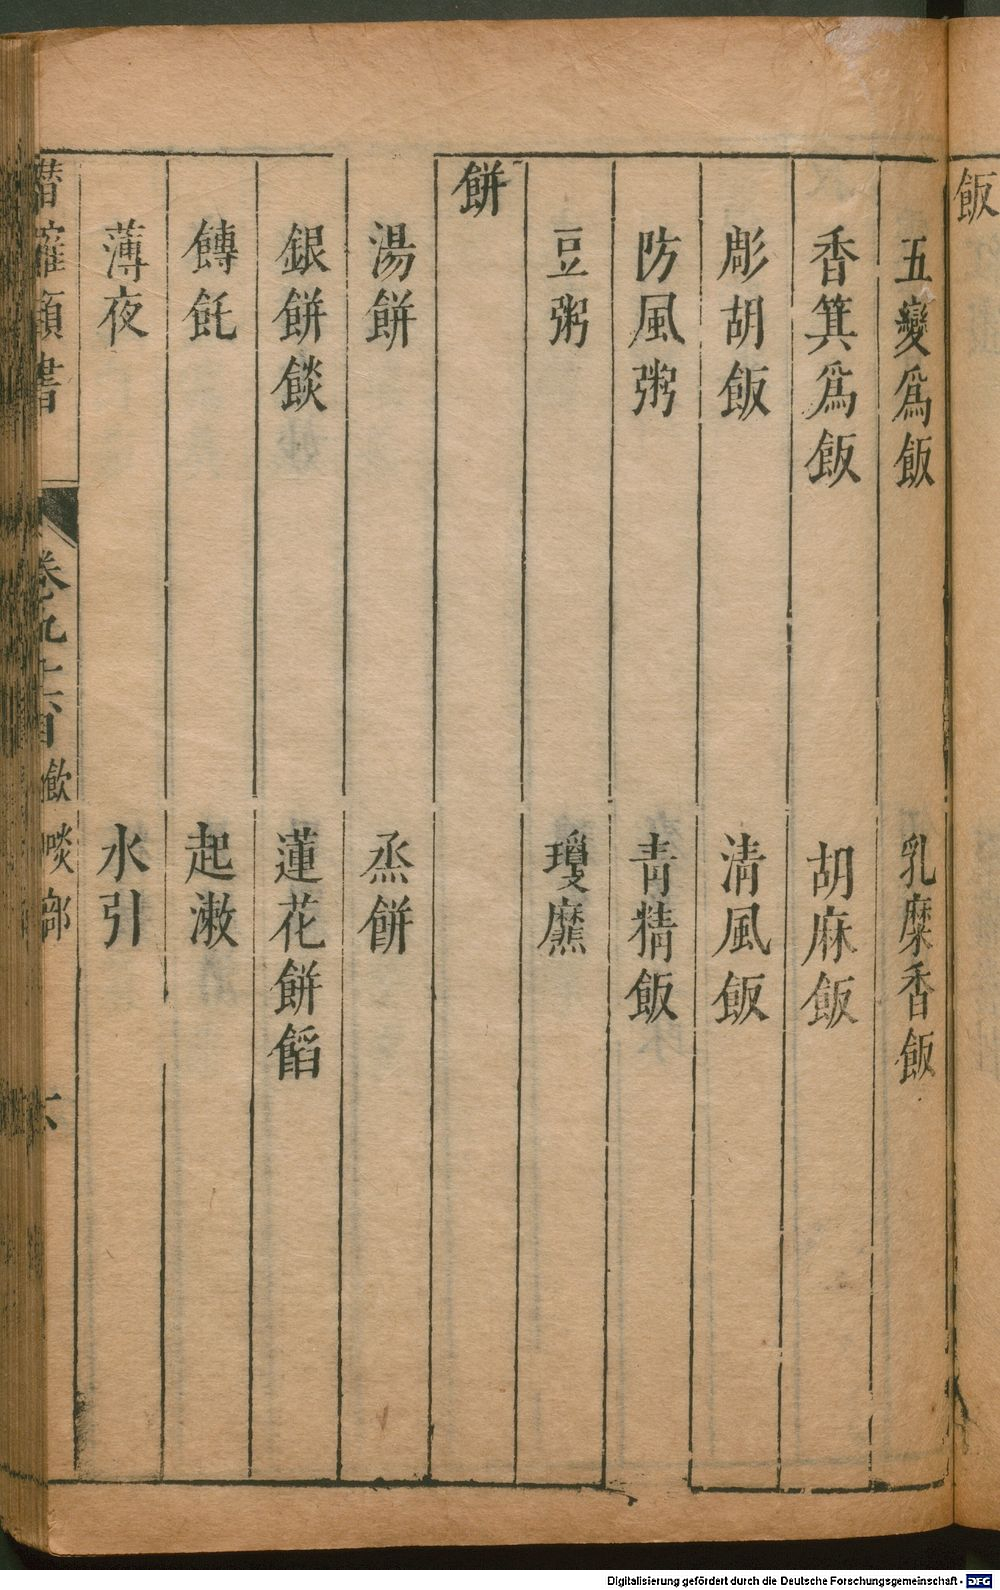 飯
五變爲飯
乳糜香飯
香箕爲飯
胡麻飯
彫胡飯
淸風飯
防風粥
靑精飯
豆粥
瓊䕷
餅
湯餅
烝餅
銀餅餤
蓮花餅餡
餺飥
起漱
薄夜
水引
潛確類書
卷九十六目
飲啖部
六
Digitalisierung gefördert durch die Deutsche Forschungsgemeinschaft - DFG